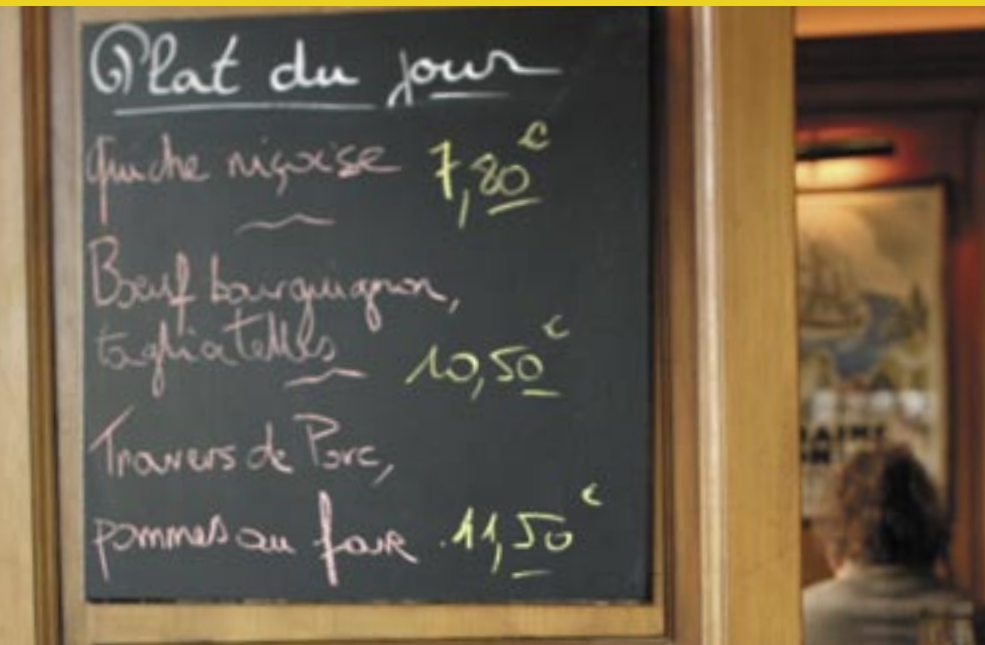 Plat du jour
Quiche niçoise 7,80€
Bœuf bourguignon,
tagliatelles 10,50€
Travers de Porc,
pommes au four 11,50€